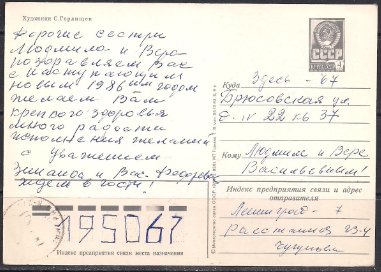 Художник С. Горлищев
Дорогие сестры
Людмила и Вера
поздравляем Вас
с наступающим
новым 1986 годом
желаем Вам
крепкого здоровья
много радости
исполнения желаний
с уважением
и Вас. Федоровы
ждем в гости!
СССР
Куда Здесь - 67
Брюсовская ул.
22 кв 37
Кому Людмиле и Вере
Васильевным!
Индекс предприятия связи и адрес
отправителя
Ленинград - 7
Расстанная
195067
Индекс предприятия связи места назначения